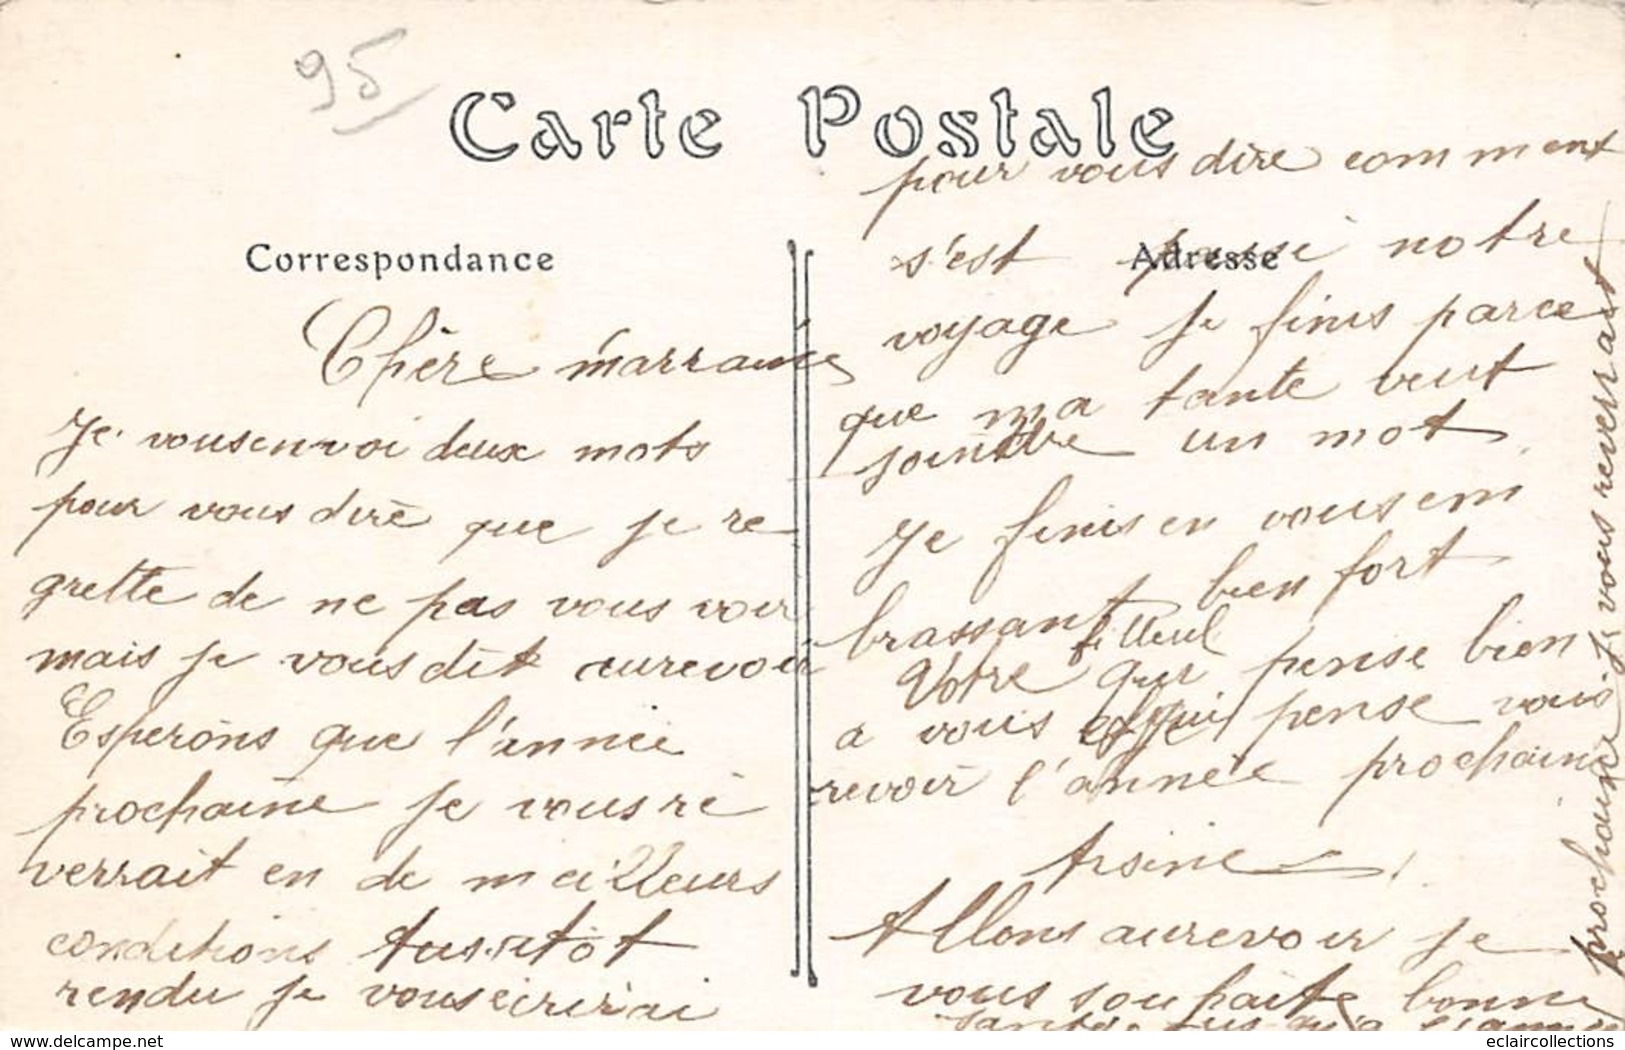 95
Carte Postale
Correspondance
Adresse
Chère marraine
Je vousenvoi deux mots
pour vous dire que je re
grette de ne pas vous voir
mais je vous dit aurevoir
Esperons que l'année
prochaine je vous re
verrait en de meilleurs
conditions Aussitôt
rendu je vous ecrirai
pour vous dire comment
s'est passé notre
voyage je finis parce
que ma tante veut
joindre un mot
Je finis en vous em
brassant bien fort
Votre filleul qui pense bien
a vous et qui pense vous
revoir l'année prochaine
Arsine
Allons aurevoir je
vous souhaite bonne
santé jus qu'a l'année
prochaine je vous reverrait
www.delcampe.net
eclaircollections